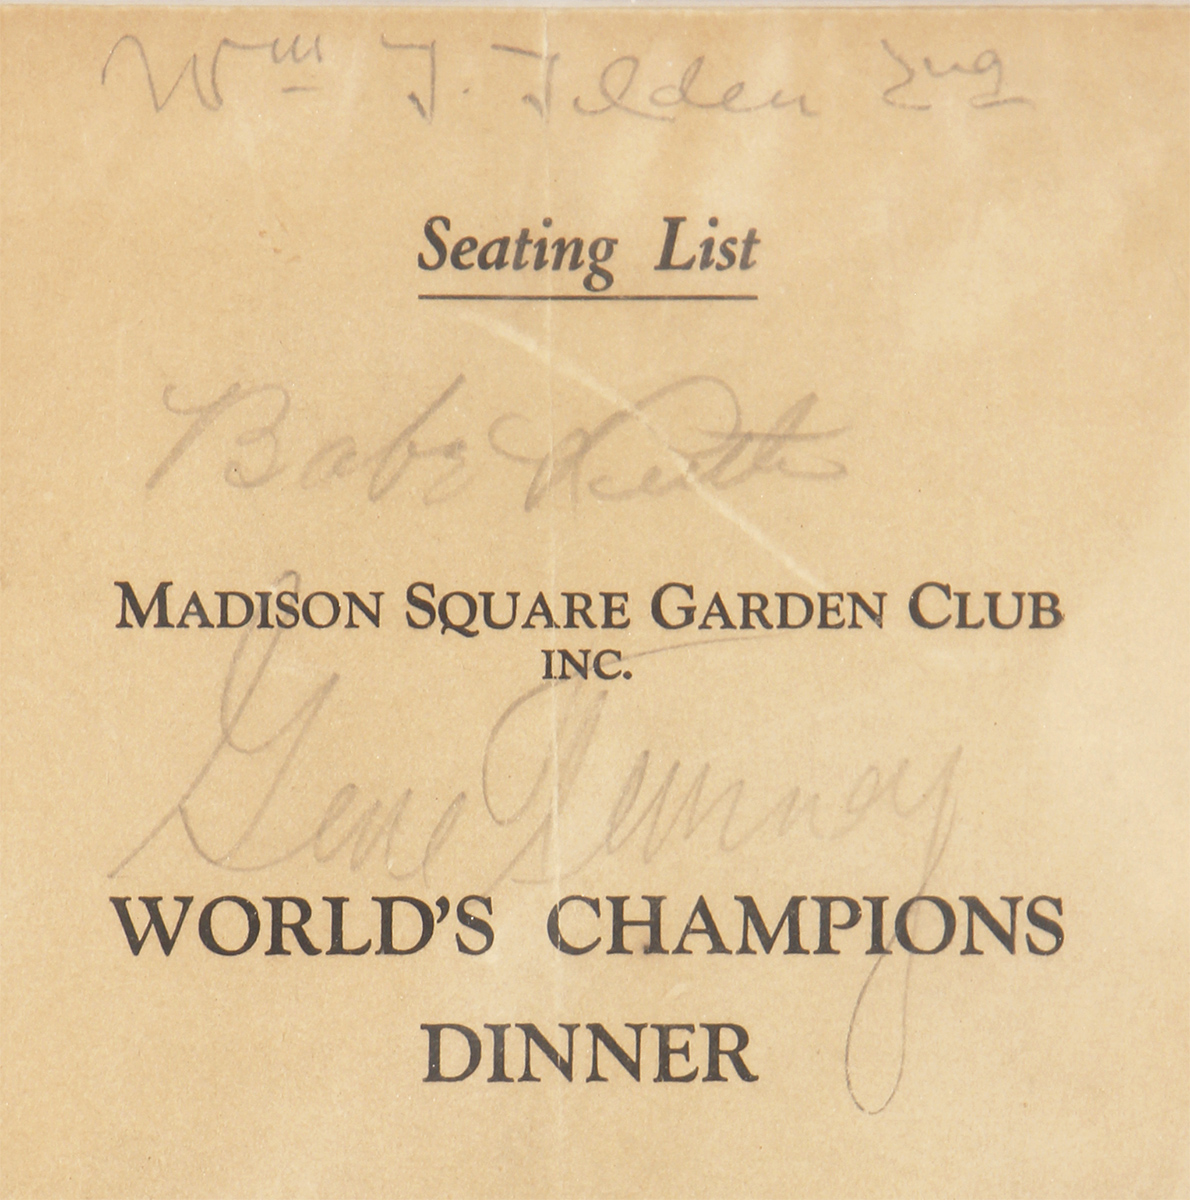 Wm T. Tilden 2nd
Seating List
Babe Ruth
MADISON SQUARE GARDEN CLUB
INC.
Gene Tunney
WORLD'S CHAMPIONS
DINNER